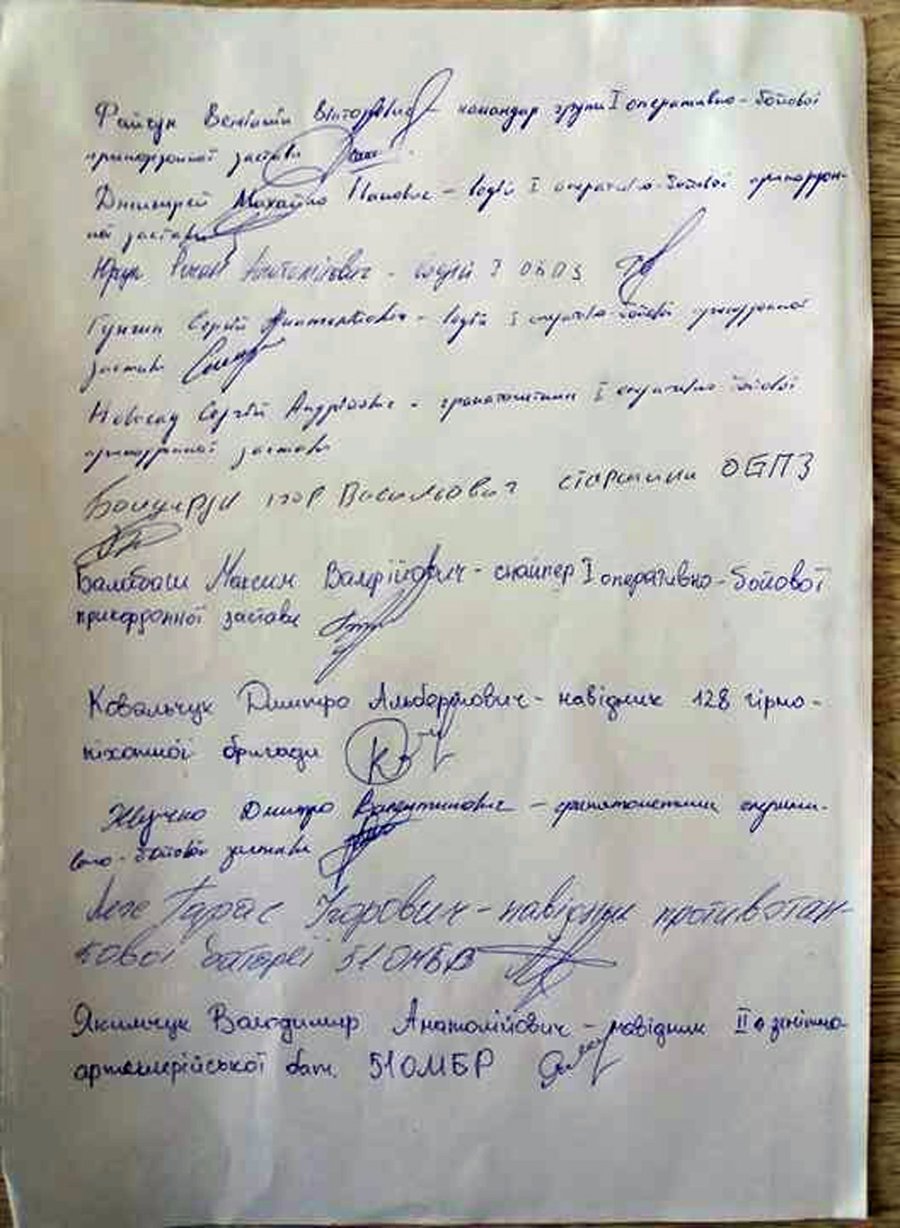 Файчук Веніамін Вікторович - командир групи I оперативно-бойової
прикордонної застави
Дмитрей Михайло Іванович - водій I оперативно-бойової прикордон-
ної застави
Юрчик Роман Анатолійович - водій I ОБПЗ
Сергій - водій I оперативно-бойової прикордонної
застави
Новосад Сергій Андрійович - гранатометник I оперативно-бойової
прикордонної застави
Бондарук Ігор Васильович старшина ОБПЗ
Балабаш Максим Валерійович - снайпер I оперативно-бойової
прикордонної застави
Ковальчук Дмитро Альбертович - навідник 128 гірно-
піхотної бригади
Дмитро Валентинович - гранатометник операти-
вно-бойової застави
Тарас Ігорович - навідник противотан-
кової батареї 51 ОМБР
Якимчук Володимир Анатолійович - навідник II зенітно
артилерійської бат. 51 ОМБР